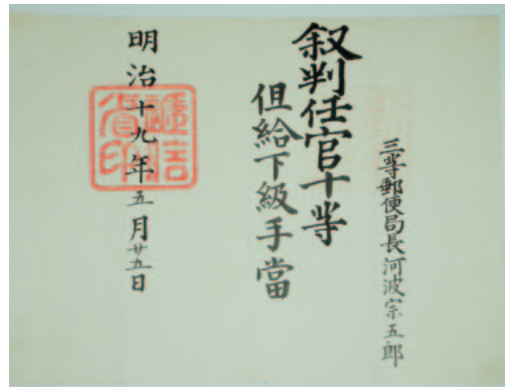 三等郵便局長河波宗五郎
叙判任官十等
但給下級手當
明治十九年五月廿五日
遞信省印